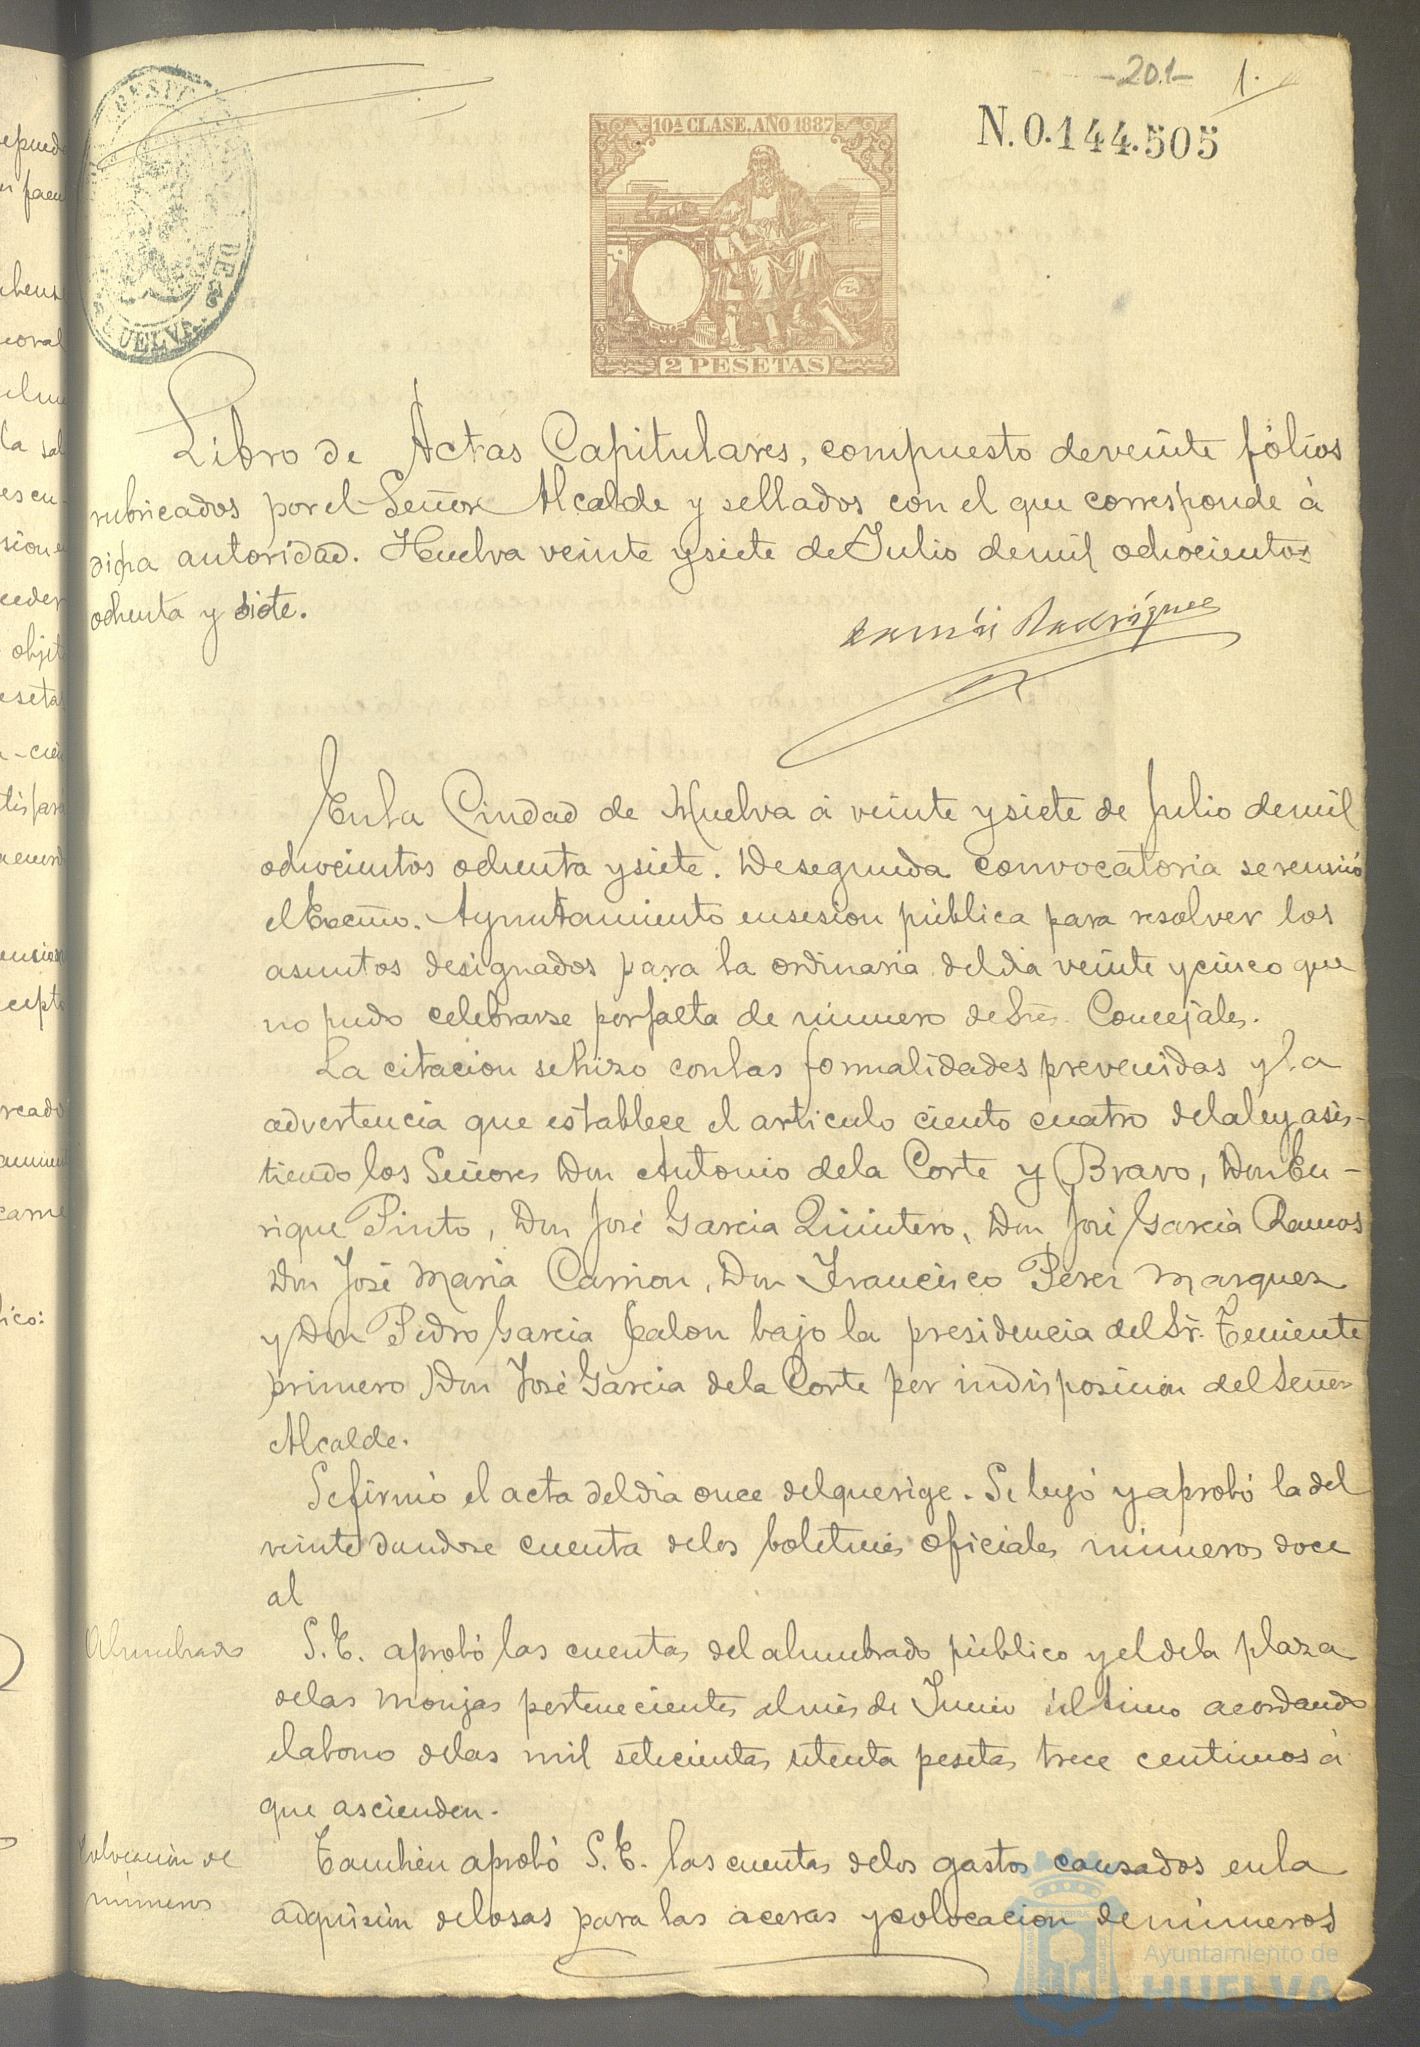 -201- 1.
N.0.144.505
10ª CLASE. AÑO 1887
2 PESETAS
DE
HUELVA
Libro de Actas Capitulares, compuesto de veinte fólios
rubricados por el Señor Alcalde y sellados con el que corresponde á
dicha autoridad. Huelva veinte y siete de Julio de mil ochocientos
ochenta y siete.
Rodriguez
En la Ciudad de Huelva á veinte y siete de Julio de mil
ochocientos ochenta y siete. De segunda convocatoria se reunió
el Excmo. Ayuntamiento en sesion pública para resolver los
asuntos designados para la ordinaria del dia veinte y cinco que
no pudo celebrarse por falta de número de Sres. Concejales.
La citacion se hizo con las formalidades prevenidas y la
advertencia que establece el articulo ciento cuatro de la ley asis-
tiendo los Señores Don Antonio de la Corte y Bravo, Don En-
rique Pinto, Don José Garcia Quintero, Don José Garcia Ramos
Don José Maria Carrion, Don Francisco Perez Marquez
y Don Pedro Garcia Jalon bajo la presidencia del Sr. Teniente
primero Don José Garcia de la Corte por indisposicion del Señor
Alcalde.
Se firmó el acta del dia once del que rige. Se leyó y aprobó la del
veinte dandose cuenta de los boletines oficiales números doce
al
Alumbrado
S. E. aprobó las cuentas del alumbrado público y el de la plaza
de las Monjas pertenecientes al mes de Junio último acordando
el abono de las mil setecientas setenta pesetas trece centimos á
que ascienden.
Colocacion de
números
Tambien aprobó S. E. las cuentas de los gastos causados en la
adquisicion de losas para las aceras y colocacion de números
Ayuntamiento de
HUELVA